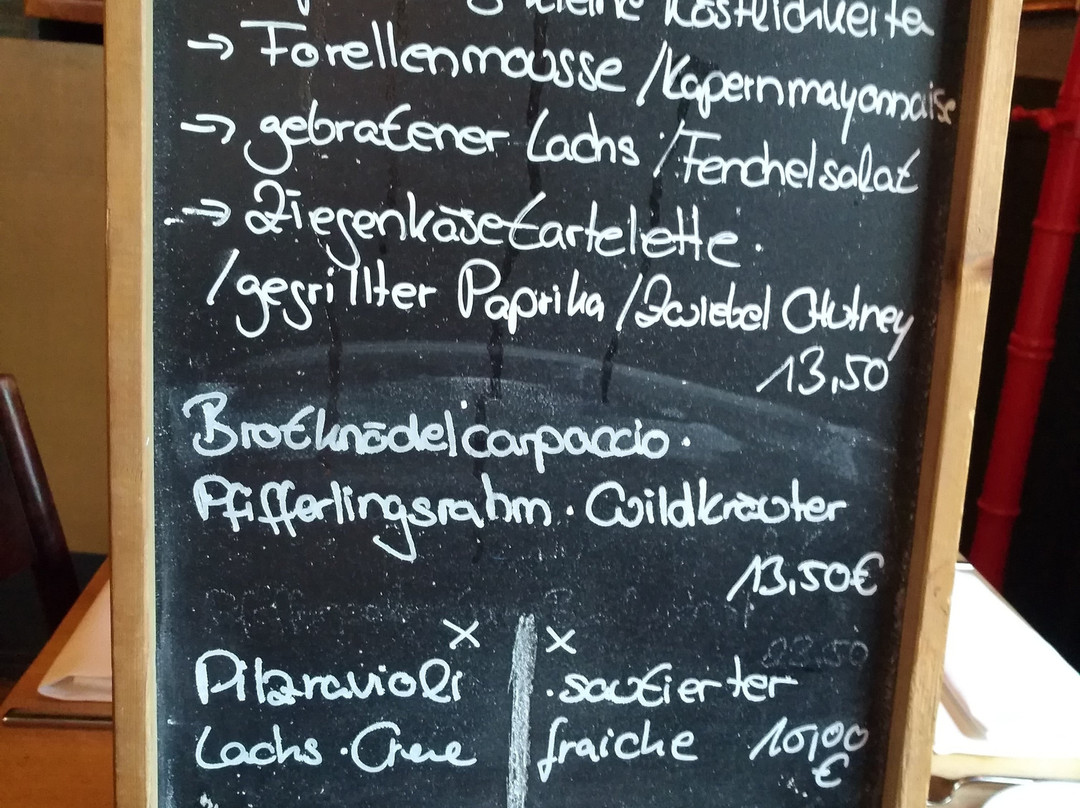 kleine Köstlichkeiten
→ Forellenmousse /Kapernmayonnaise
→ gebratener Lachs /Fenchelsalat
→ Ziegenkäsetartelette.
/gegrillter Paprika /Zwiebel Chutney
13,50
Brotknödelcarpaccio.
Pfifferlingsrahm · Wildkräuter
13,50€
x x
22,50
Pilzravioli · sautierter
Lachs · Creme fraiche 10,00
€